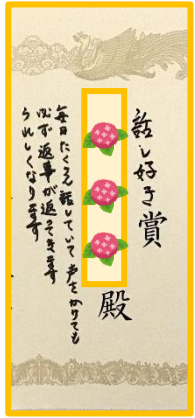 話し好き賞
殿
毎日たくさん話していて声をかけても
必ず返事が返ってきます
うれしくなります